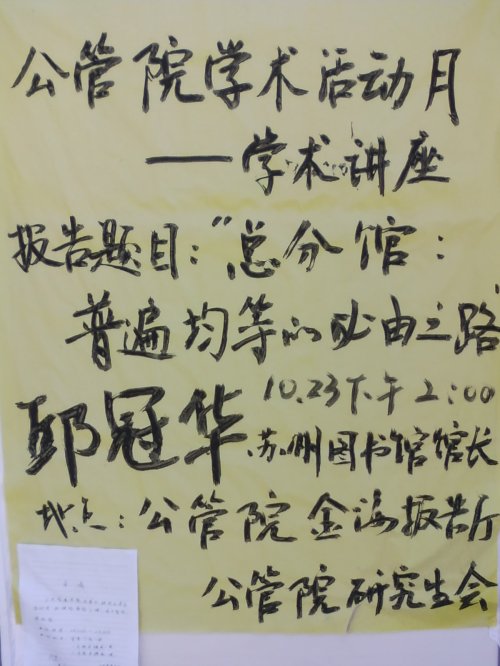 公管院学术活动月
——学术讲座
报告题目："总分馆：
普遍均等的必由之路"
邱冠华 10.23下午2:00
苏州图书馆馆长
地点：公管院 金海报告厅
公管院研究生会